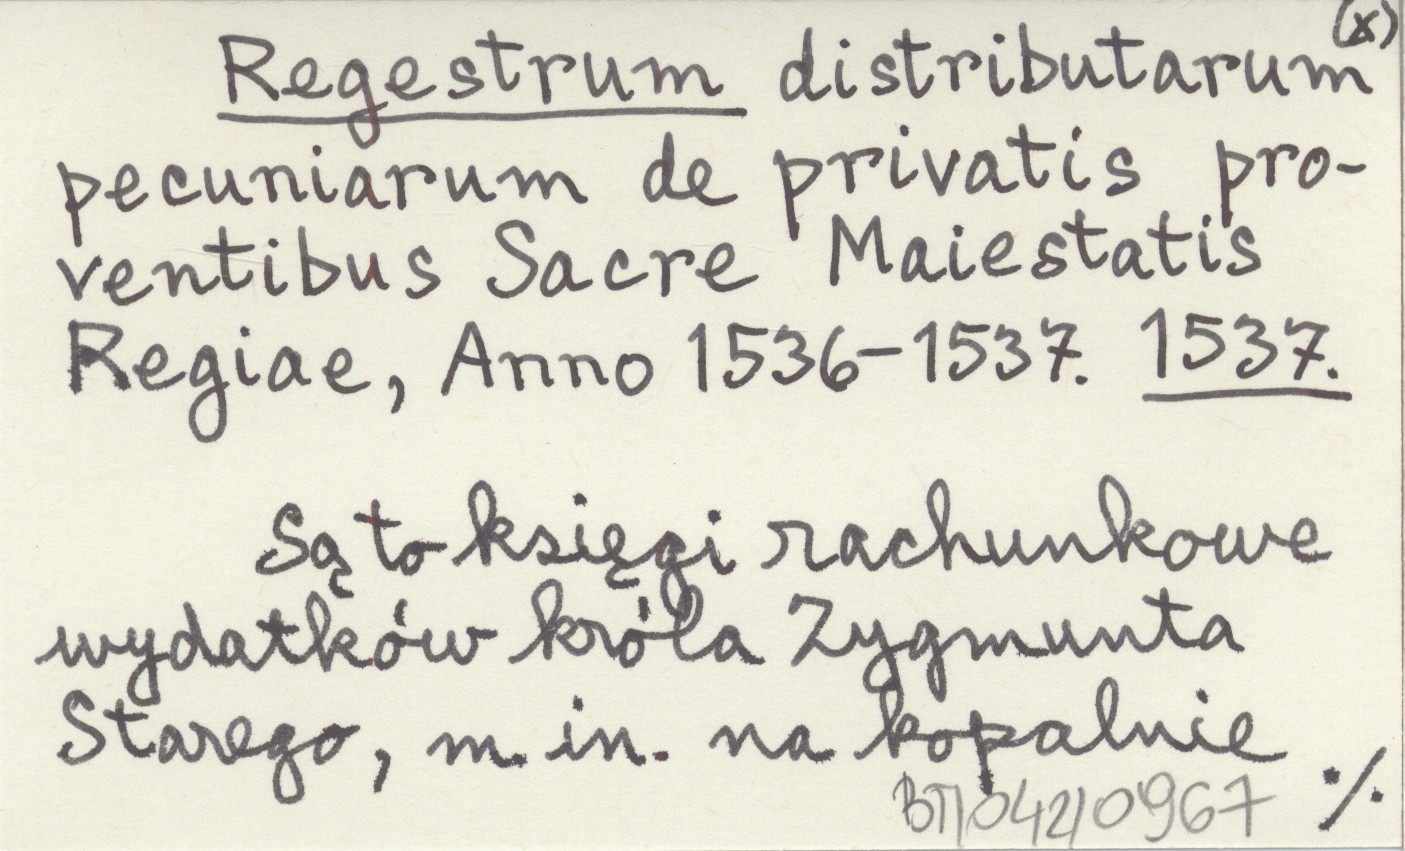 (x)
Regestrum distributarum
pecuniarum de privatis pro-
ventibus Sacre Maiestatis
Regiae, Anno 1536-1537. 1537.
Są to księgi rachunkowe
wydatków króla Zygmunta
Starego, m.in. na kopalnie
BT/042/0967 ./.